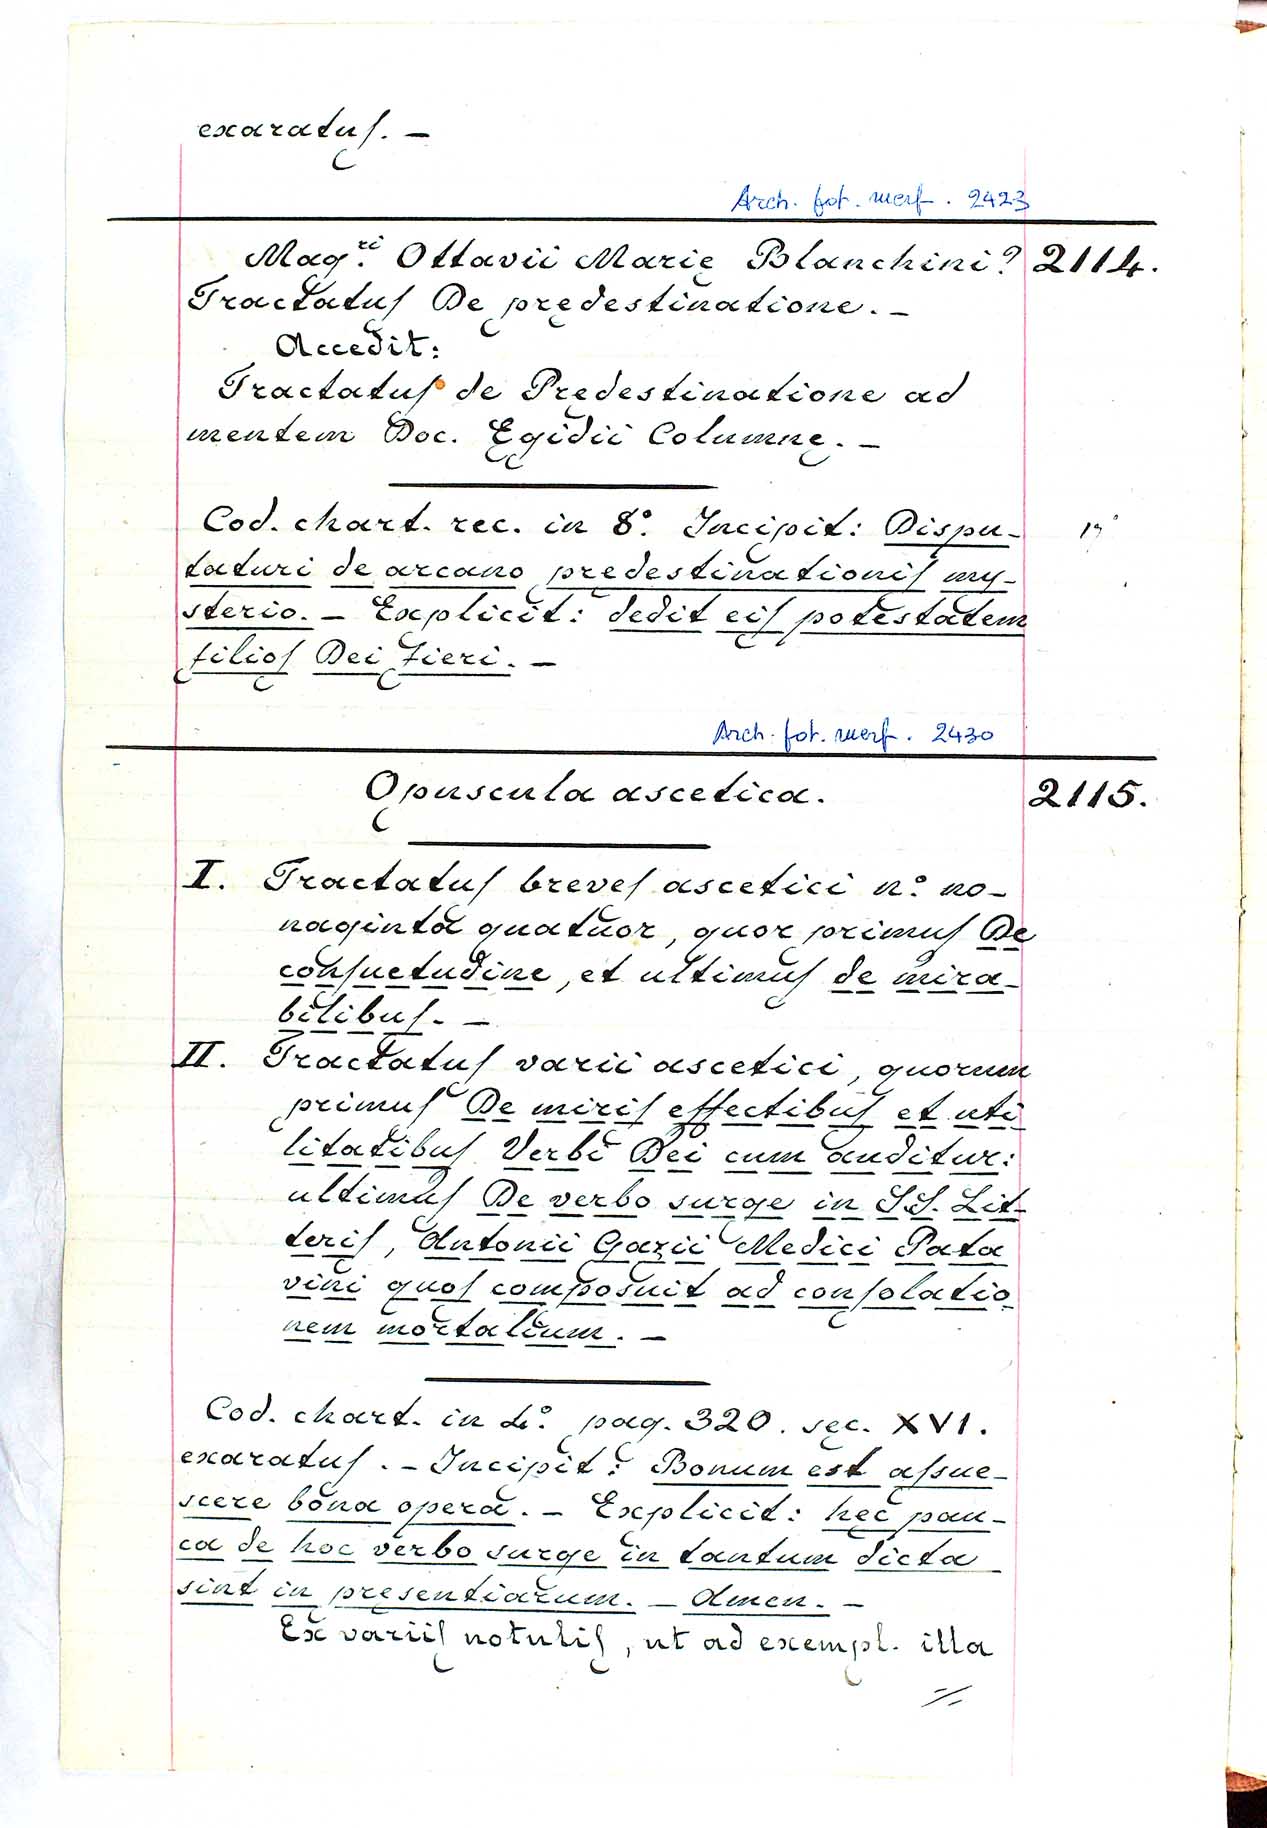 exaratus. –
Arch. fot. merf. 2423
Mag.ri Ottavii Marię Blanchini? 2114.
Tractatus De prędestinatione. –
Accedit:
Tractatus de Prędestinatione ad
mentem Doc. Ęgidii Columnę. –
Cod. chart. rec. in 8º. Incipit: Dispu-
taturi de arcano prędestinationis my-
sterio. – Explicit: dedit eis potestatem
filios Dei fieri. –
Arch. fot. merf. 2430
Opuscula ascetica. 2115.
I. Tractatus breves ascetici nº. no-
naginta quatuor, quor primus De
consuetudine, et ultimus de mira-
bilibus. –
II. Tractatus varii ascetici, quorum
primus De miris effectibus et uti
litatibus Verbi Dei cum auditur:
ultimus De verbo surge in S.S. Lit-
teris, Antonii Gazii Medici Pata
vini quos composuit ad consolatio
nem mortalium. –
Cod. chart. in 4º. pag. 320. sęc. XVI.
exaratus. – Incipit: Bonum est assue-
scere bona opera. – Explicit: hęc pau-
ca de hoc verbo surge in tantum dicta
sint in pręsentiarum. – Amen. –
Ex variis notulis, ut ad exempl. illa